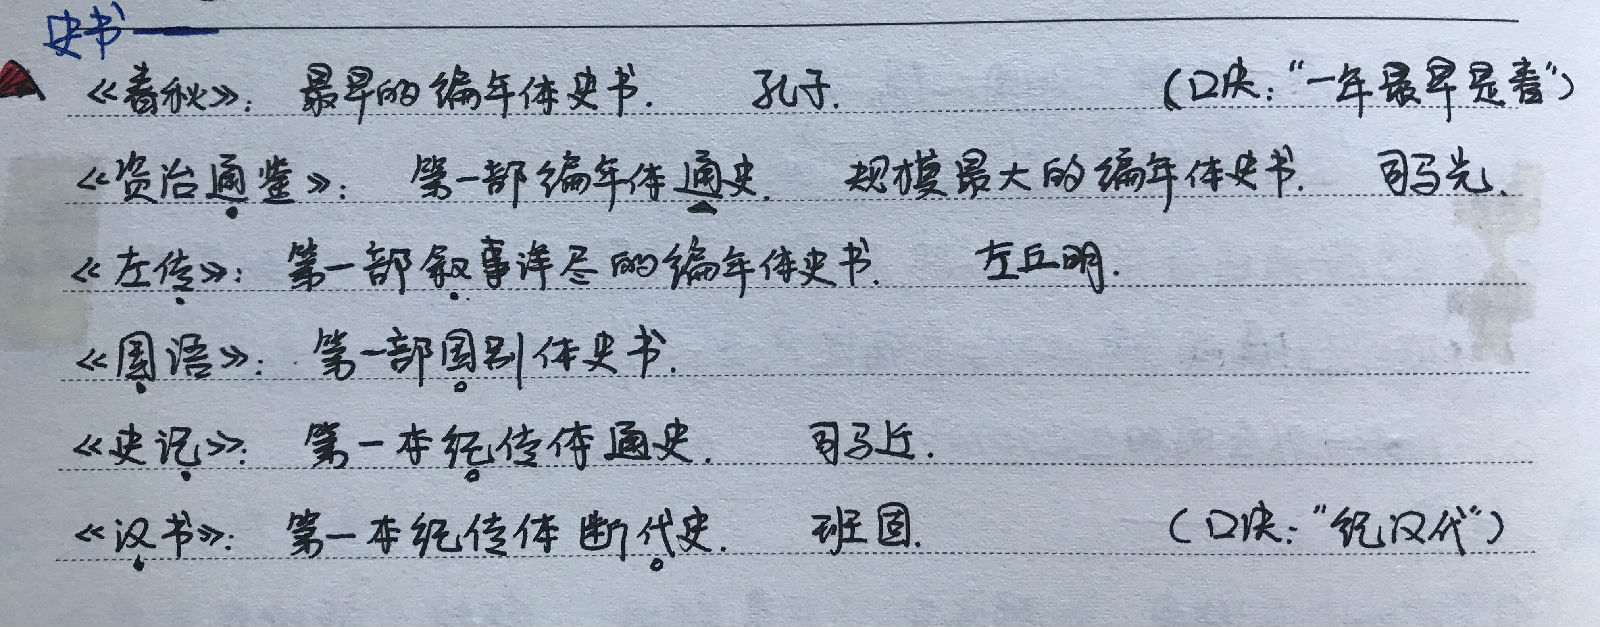 史书——
《春秋》：最早的编年体史书. 孔子. （口决：“一年最早是春”）
《资治通鉴》：第一部编年体通史. 规模最大的编年体史书. 司马光.
《左传》：第一部叙事详尽的编年体史书. 左丘明.
《国语》：第一部国别体史书.
《史记》：第一本纪传体通史. 司马迁.
《汉书》：第一本纪传体断代史. 班固. （口决：“纪汉代”）